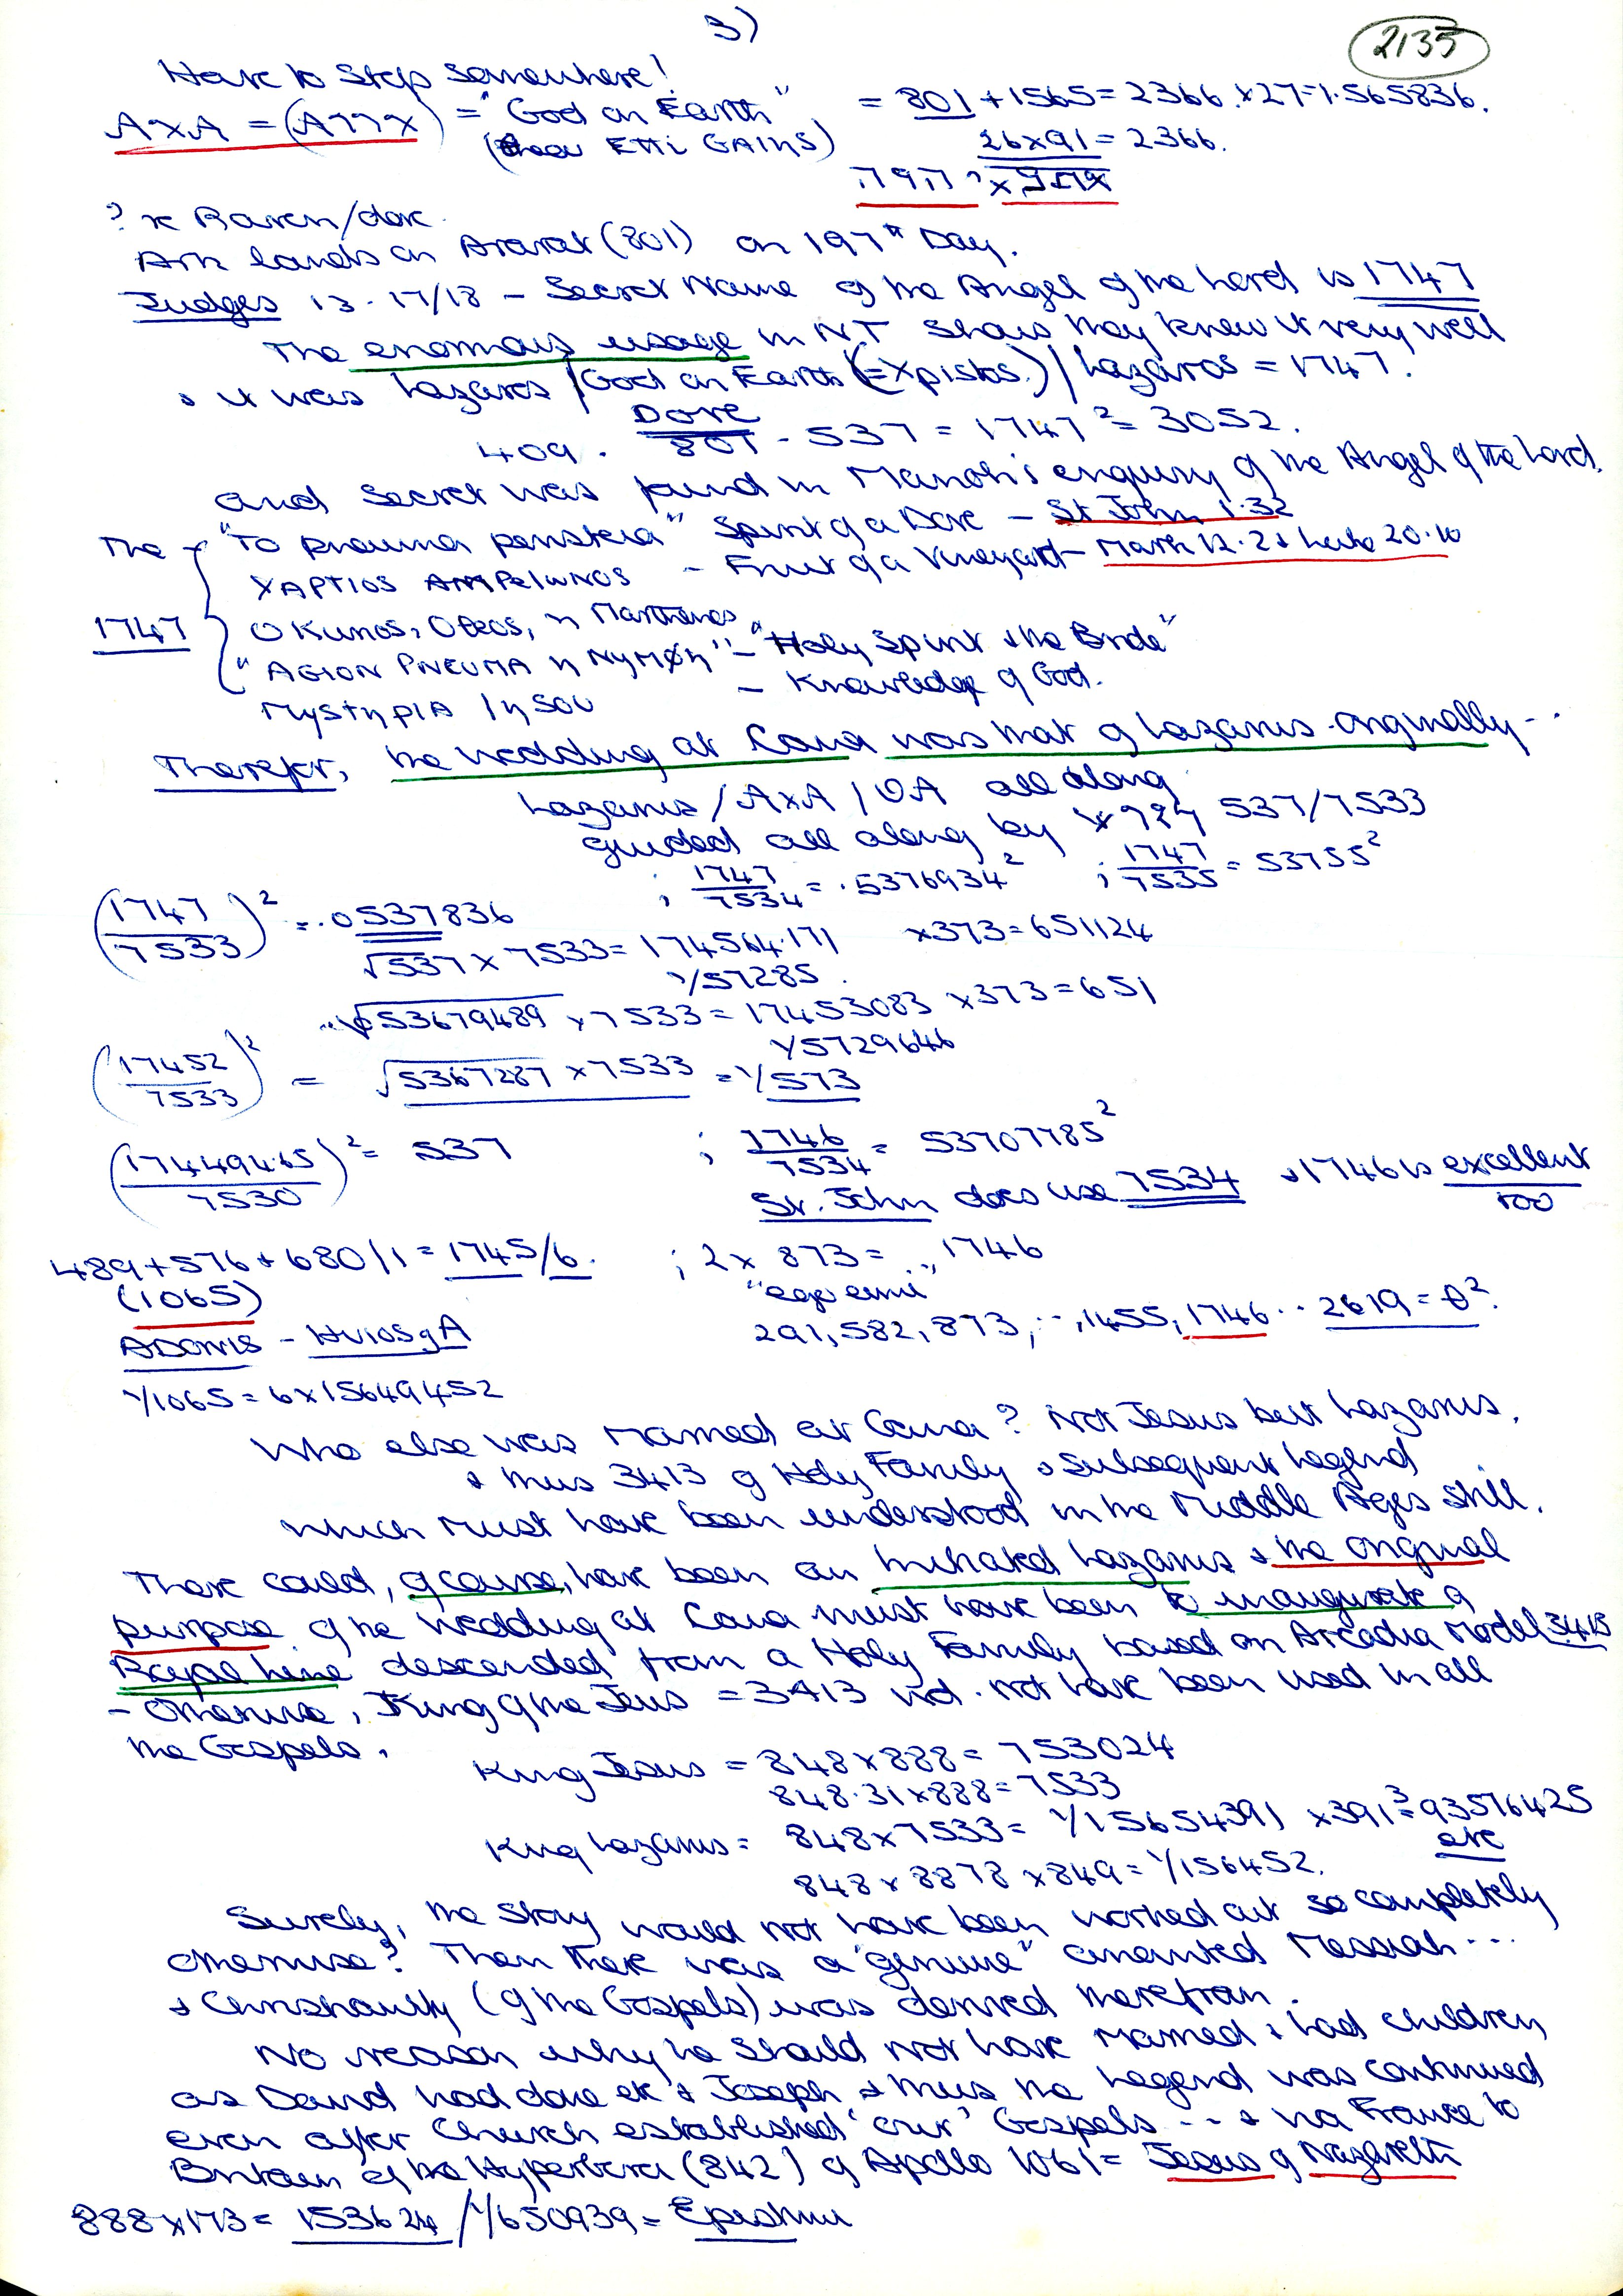 3)
2135
Have to Stop Somewhere!
AXA = (A77X) = "God on Earth" = 801 + 1565 = 2366. x 27 = 1.565836.
( ETTI GAINS) 26x91 = 2366.
? x Raven/dove.
Ark lands on Ararat (801) on 197th Day.
Judges 13.17/18 - Secret Name of the Angel of the Lord is 1747
The enormous usage in N.T shows they knew it very well
& it was Lazaros / God on Earth (=Xpistos.) / Lazaros = 1747.
Dove
409. 801 - 537 = 1747² = 3052.
and Secret was found in Manoah's enquiry of the Angel of the Lord.
The "To pneuma peristera" Spirit of a Dove - St John 1.32
XAPTIOS AMPelwNOS - Fruit of a Vineyard - Mark 12.2 & Luke 20.10
1747 O Kumos, O Beos, η Marthenos
"AGION PNEUMA η NyMΦη" - "Holy Spirit & the Bride"
MystηpIA IηSOU - Knowledge of God.
Therefor, the wedding at Cana was that of Lazarus - Originally - ..
Lazarus / AXA / OA all along
guided all along by 537/7533
(1747/7533)² = .0537836 ; 1747/7534 = .5376934² ; 1747/7535 = 53755²
√537 x 7533 = 174564.171 x373 = 651124
1/57285.
√53679489 x 7533 = 17453083 x373 = 651
1/5729646
(17452/7533)² = √5367287 x 7533 = 1/573
(17449465/7530)² = 537 ; 1746/7534 = 53707785²
St. John does use 7534 & 1746 is excellent too
489 + 576 + 680/1 = 1745/6. ; 2 x 873 = .., 1746
(1065) "ego eimi"
ADONIS - HUIOS of A 291, 582, 873, .., 1455, 1746 .. 2619 = θ².
1/1065 = 6 x 15649452
Who else was Married at Cana? Not Jesus but Lazarus.
& thus 3413 of Holy Family & Subsequent Legend
which must have been understood in the Middle Ages still.
There could, of course, have been an initiated Lazarus & the original
purpose of the wedding at Cana must have been to inaugurate a
Royal Line descended from a Holy Family based on Arcadia Model 3413
- Otherwise, King of the Jews = 3413 wd. not have been used in all
the Gospels.
King Jesus = 848 x 888 = 753024
848.31 x 888 = 7533
King Lazarus = 848 x 7533 = 1/15654391 x 391³ = 93576425
848 x 8878 x 849 = 1/156452. etc
Surely, the story would not have been worked out so completely
otherwise? Then there was a "genuine" anointed Messiah ...
& Christianity (of the Gospels) was derived therefrom.
No reason why he should not have married & had children
as David had done etc & Joseph & thus the Legend was continued
even after Church established 'our' Gospels ... & via France to
Britain of the Hyperborea (842) of Apollo 1061 = Jesus of Nazareth
888 x 173 = 153624 / 1/650939 = Epeshmu